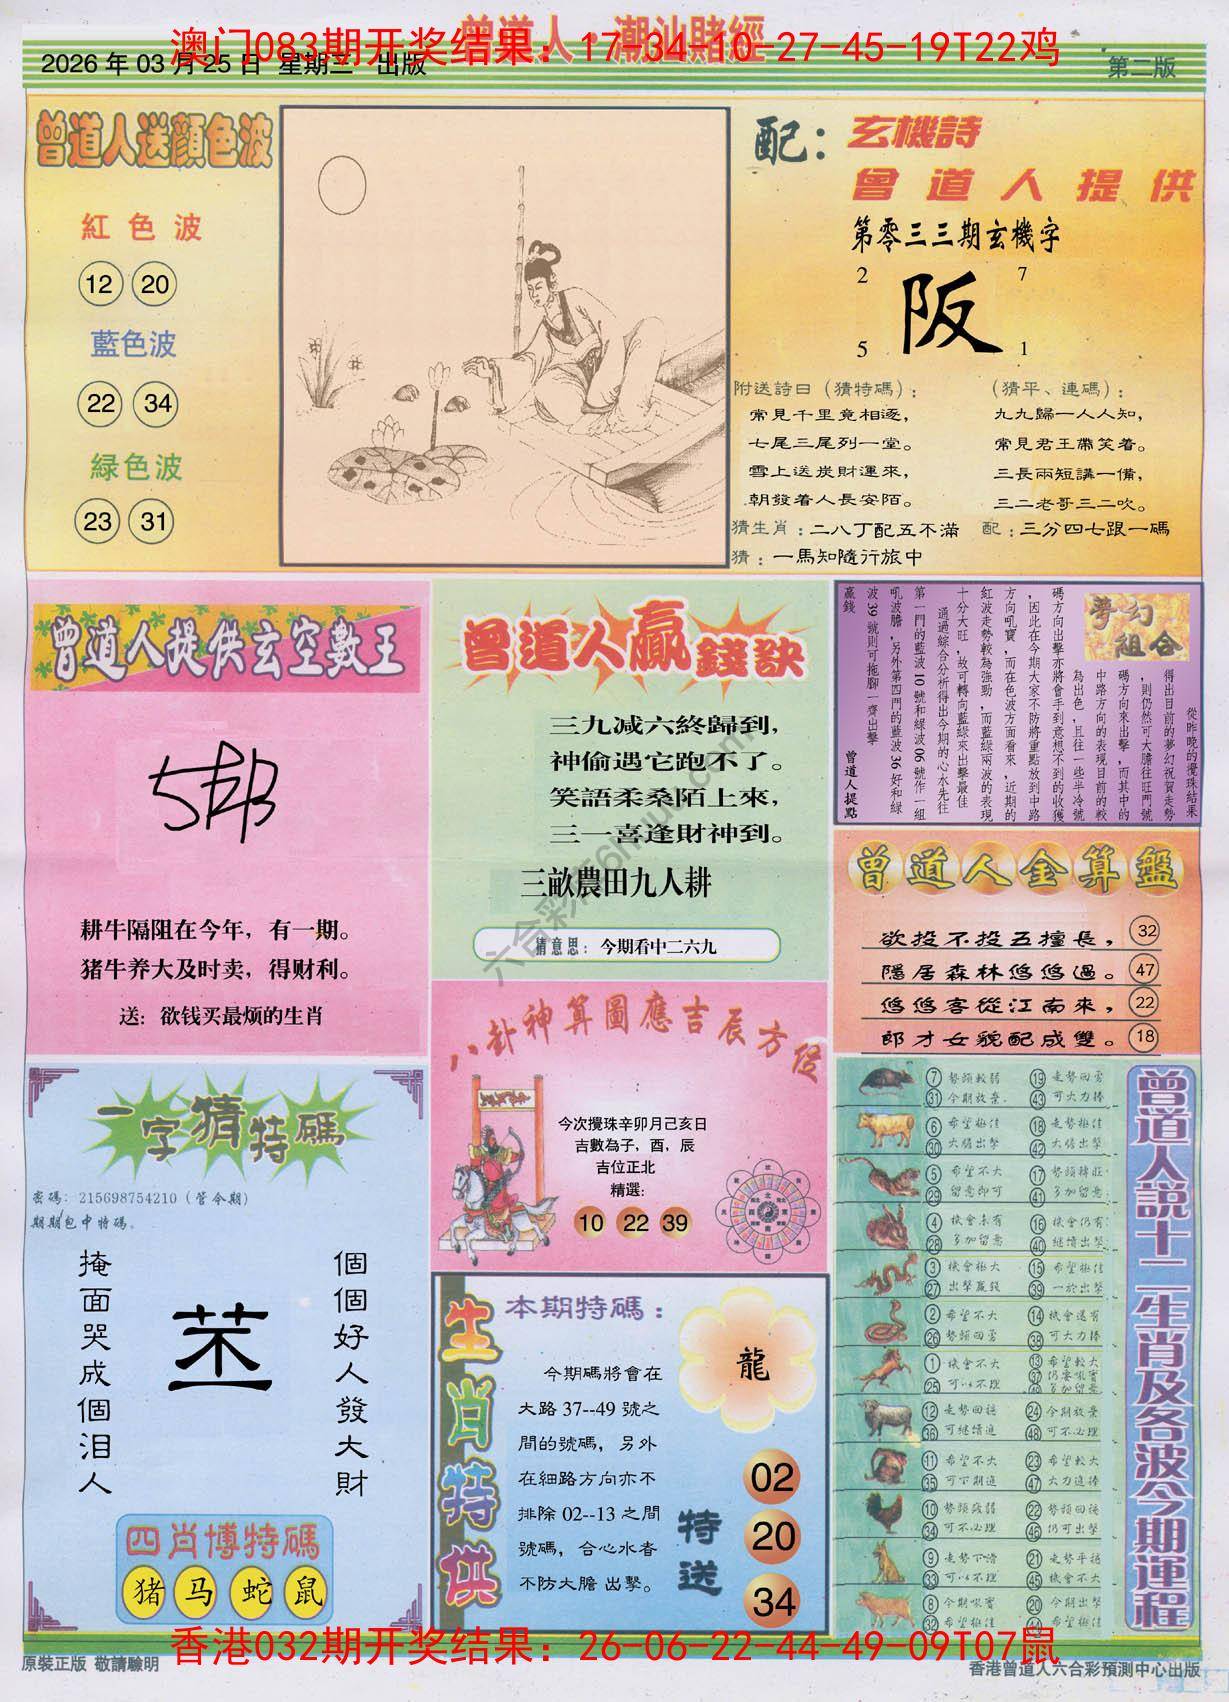 曾道人·潮汕賭經
澳门083期开奖结果：17-34-10-27-45-19T22鸡
2026 年 03 月 25 日 星期三 出版
第二版
曾道人送顔色波
紅色波
12 20
藍色波
22 34
緑色波
23 31
配：
玄機詩
曾道人提供
第零三三期玄機字
2 7
阪
5 1
附送詩曰（猜特碼）：
常見千里竟相逐，
七尾三尾列一堂。
雪上送炭財運來，
朝發着人長安陌。
（猜平、連碼）：
九九歸一人人知，
常見君王帶笑着。
三長兩短講一備，
三二老哥三二吹。
猜生肖：二八丁配五不滿 配：三分四七跟一碼
猜：一馬知隨行旅中
曾道人提供玄空數王
耕牛隔阻在今年，有一期。
猪牛养大及时卖，得财利。
送：欲钱买最烦的生肖
曾道人贏錢訣
三九减六終歸到，
神偷遇它跑不了。
笑語柔桑陌上來，
三一喜逢財神到。
三畝農田九人耕
猜意思：今期看中二六九
夢幻組合
從昨晚的攪珠結果
得出目前的夢幻祝賀走勢
，則仍然可大膽往旺門號
碼方向來出擊，而其中的
中路方向的表現目前的較
為出色，且往一些半冷號
碼方向出擊亦將會手到意想不到的收獲
，因此在今期大家不防將重點放到中路
方向吼寶，而在色波方面看來，近期的
紅波走勢較為強勁，而藍綠兩波的表現
十分大旺，故可轉向藍綠來出擊最佳
通過綜合分析得出今期的心水先往
第一門的藍波10號和緑波06號作一組
吼波膽，另外第四門的藍波36好和緑
波39號則可拖腳一齊出擊
贏錢
曾道人提點
曾道人金算盤
欲投不投五擅長， 32
隱居森林悠悠過。 47
悠悠客從江南來， 22
郎才女貌配成雙。 18
八卦神算圖應吉辰方位
今次攪珠辛卯月己亥日
吉數為子，酉，辰
吉位正北
精選：
10 22 39
一字猜特碼
密碼：215698754210（管令期）
期期包中特碼。
個個好人發大財
苤
掩面哭成個泪人
四肖博特碼
猪 马 蛇 鼠
生肖特供
本期特碼：
龍
今期碼將會在
大路 37--49 號之
間的號碼，另外
在細路方向亦不
排除 02--13 之間
號碼，合心水者
不防大膽 出擊。
特送
02
20
34
曾道人説十二生肖及各波今期運程
7 勢頭較弱 19 走勢回勇
31 今期放棄 43 可大力捧
6 希望極佳 18 走勢極佳
30 大膽出擊 42 大膽出擊
5 希望不大 17 勢頭轉旺
29 留意即可 41 多加留意
4 機會未有 16 機會仍有
28 多加留意 40 繼續出擊
3 機會極大 15 希望極佳
27 出擊贏錢 39 一於出擊
2 希望不大 14 機會還有
26 勢頭回勇 38 可大力捧
1 機會不大 13 希望較大
25 可以不理
12 走勢回穩 24 今期放棄
36 可繼續追 48 可不必理
11 希望不大 23 希望較大
35 可下期追 47 大力追捧
10 勢頭疲弱 22 勢頭回穩
34 可不必理 46 仍可出擊
9 走勢下滑 21 走勢平穩
33 可以不理 45 機會不大
8 今期吼寶 20 今期出擊
32 希望極佳 希望極佳
香港032期开奖结果：26-06-22-44-49-09T07鼠
原裝正版 敬請驗明
香港曾道人六合彩預測中心出版